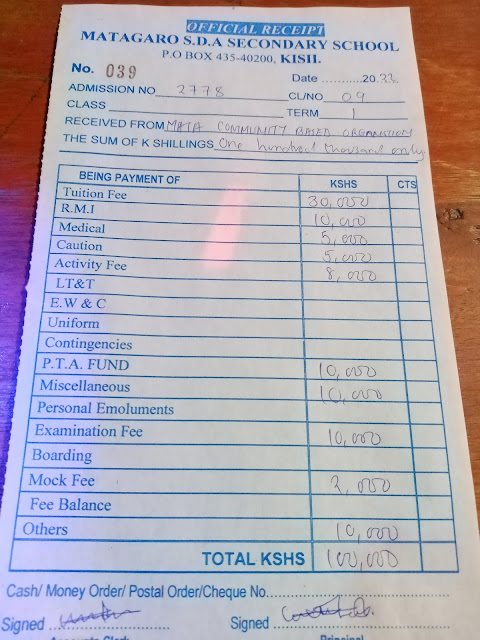 OFFICIAL RECEIPT
MATAGARO S.D.A SECONDARY SCHOOL
P.O BOX 435-40200, KISII.
No. 039
Date ...........20.23
ADMISSION NO 2778 CL/NO 09
CLASS TERM 1
RECEIVED FROM MATA COMMUNITY BASED ORGANISTION
THE SUM OF K SHILLINGS One hundred thousand only
BEING PAYMENT OF KSHS CTS
Tuition Fee 30,000
R.M.I 10,000
Medical 5,000
Caution 5,000
Activity Fee 8,000
LT&T
E.W & C
Uniform
Contingencies
P.T.A. FUND 10,000
Miscellaneous 10,000
Personal Emoluments
Examination Fee 10,000
Boarding
Mock Fee 2,000
Fee Balance
Others 10,000
TOTAL KSHS 100,000
Cash/ Money Order/ Postal Order/Cheque No.
Signed Signed
Accounts Clerk Principal